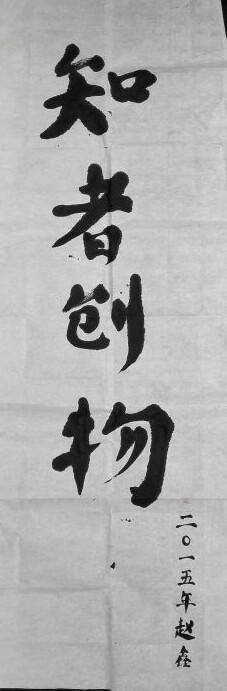 知者创物
二〇一五年赵鑫